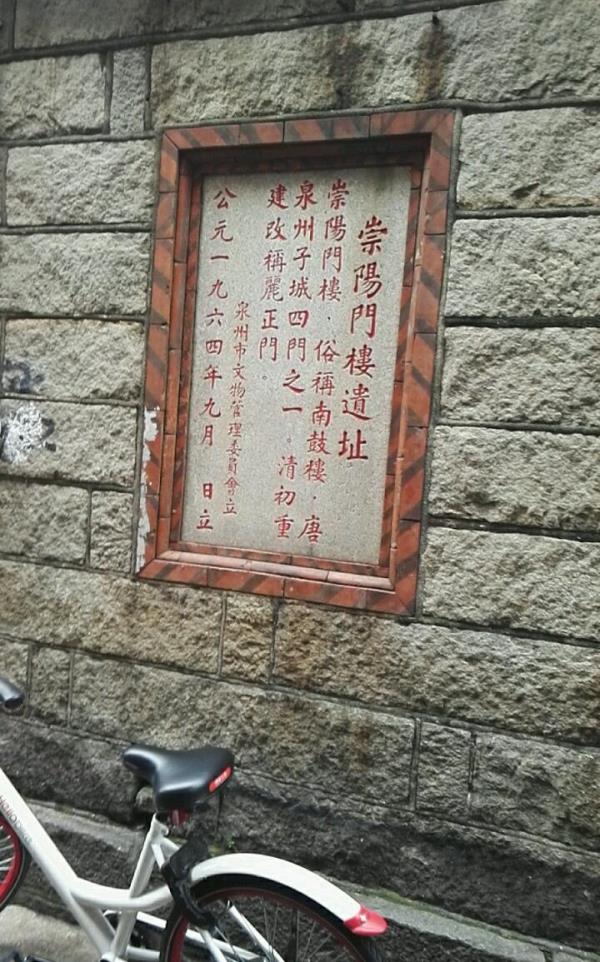 崇陽門樓遺址
崇陽門樓·俗稱南鼓樓·唐
泉州子城四門之一。清初重
建改稱麗正門。
泉州市文物管理委員會立
公元一九六四年九月 日立